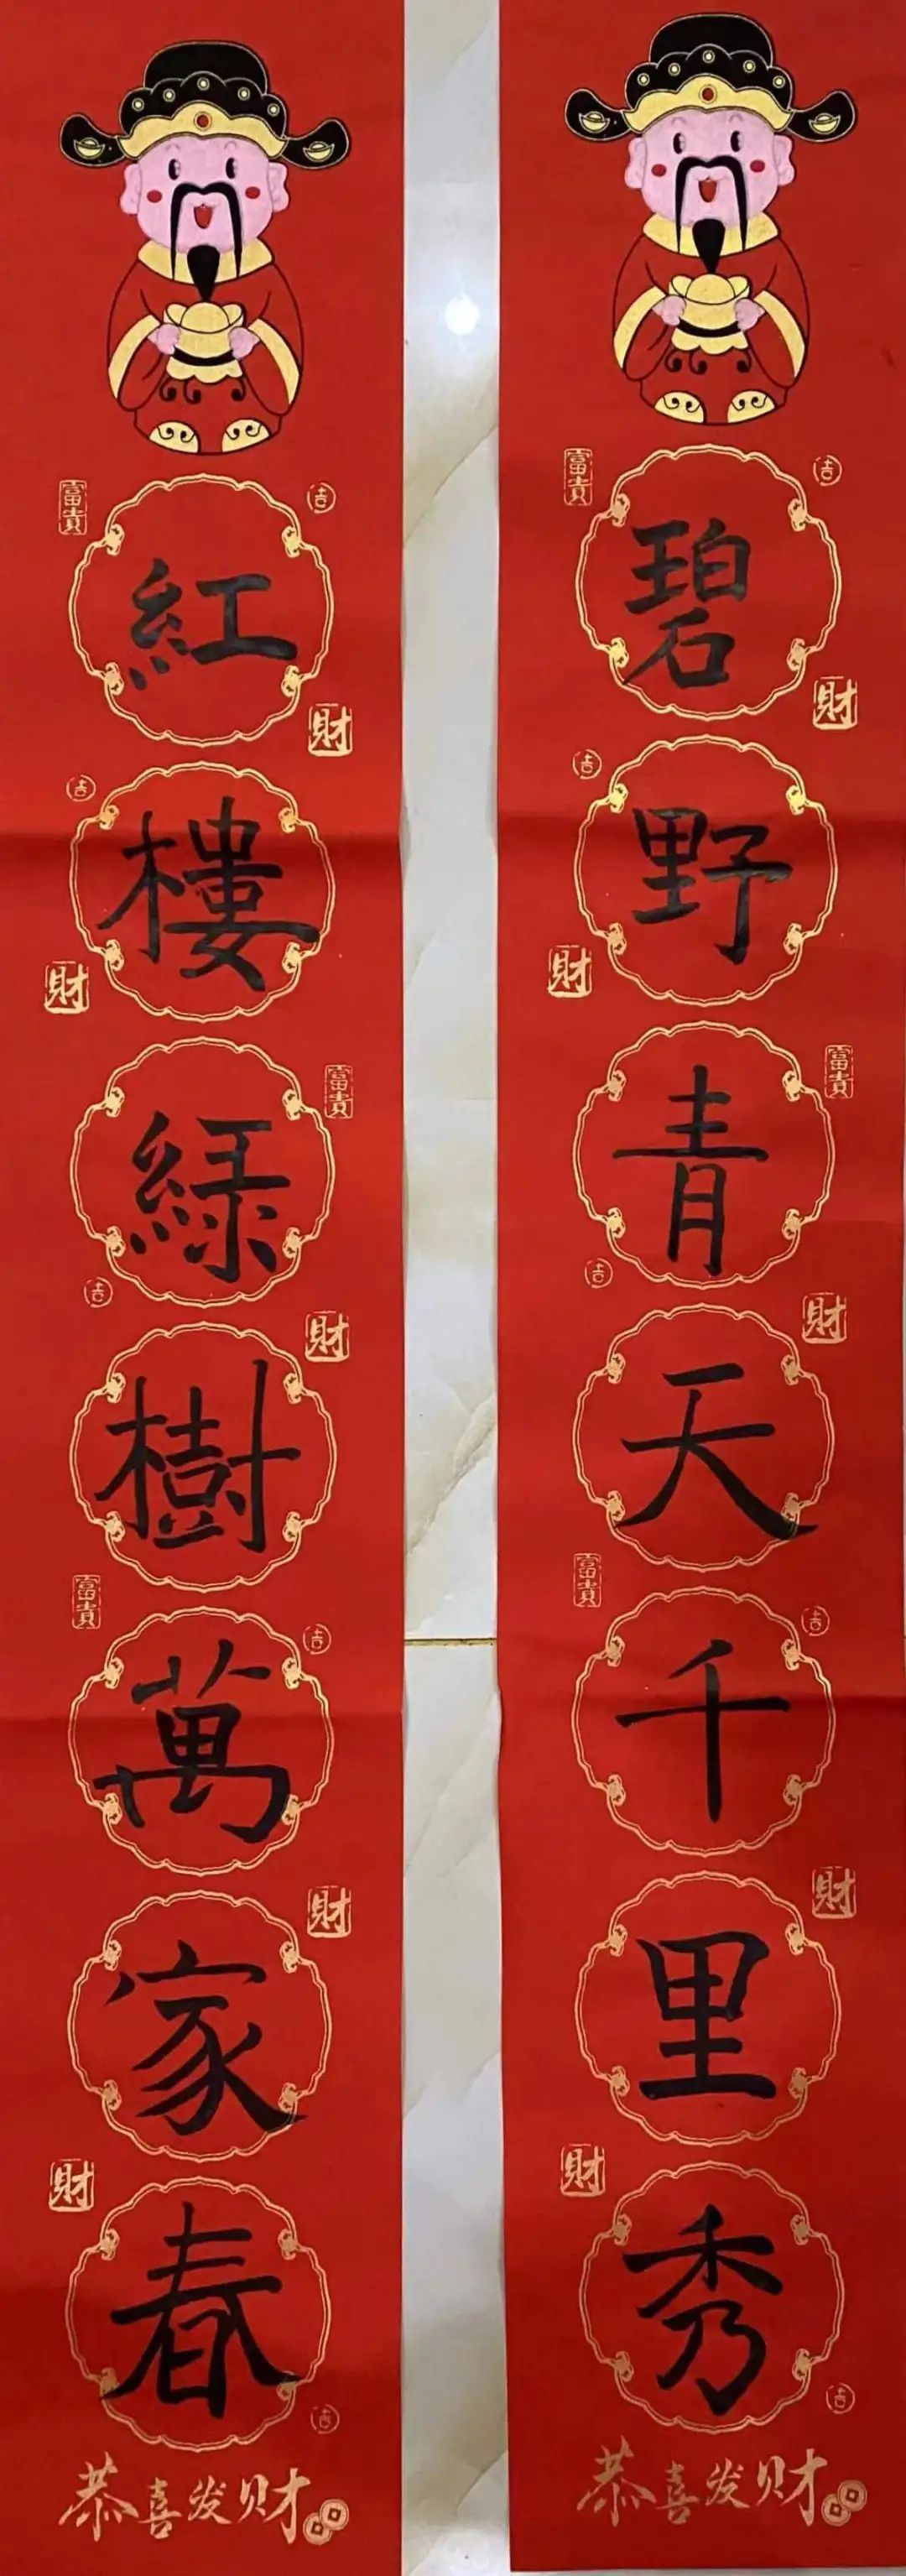 碧野青天千里秀
紅樓綠樹萬家春
富貴
吉
財
吉
財
富貴
吉
財
富貴
吉
財
財
吉
恭喜发财
富貴
吉
財
吉
財
富貴
吉
財
富貴
吉
財
財
吉
恭喜发财